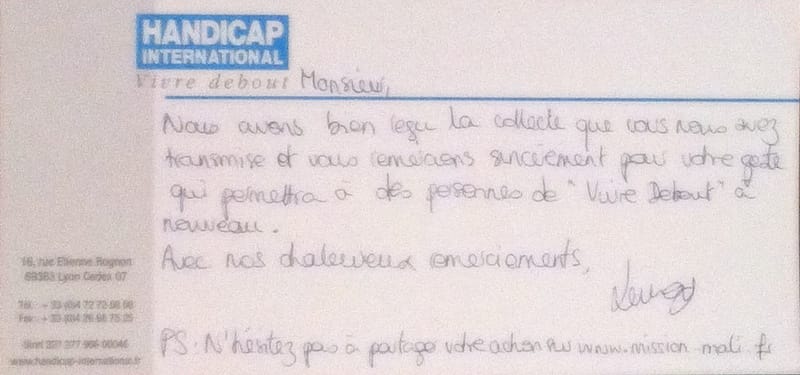 HANDICAP
INTERNATIONAL
Vivre debout
Monsieur,
Nous avons bien reçu la collecte que vous nous avez
transmise et vous remercions sincèrement pour votre geste
qui permettra à des personnes de "Vivre Debout" à
nouveau.
Avec nos chaleureux remerciements,
PS: N'hésitez pas à partager votre action sur www.mission-mali.fr
16, rue Etienne Rognon
69363 Lyon Cedex 07
Tél. : + 33 (0)4 72 72 08 08
Fax : + 33 (0)4 26 68 75 25
Siret 321 377 966 00046
www.handicap-international.fr